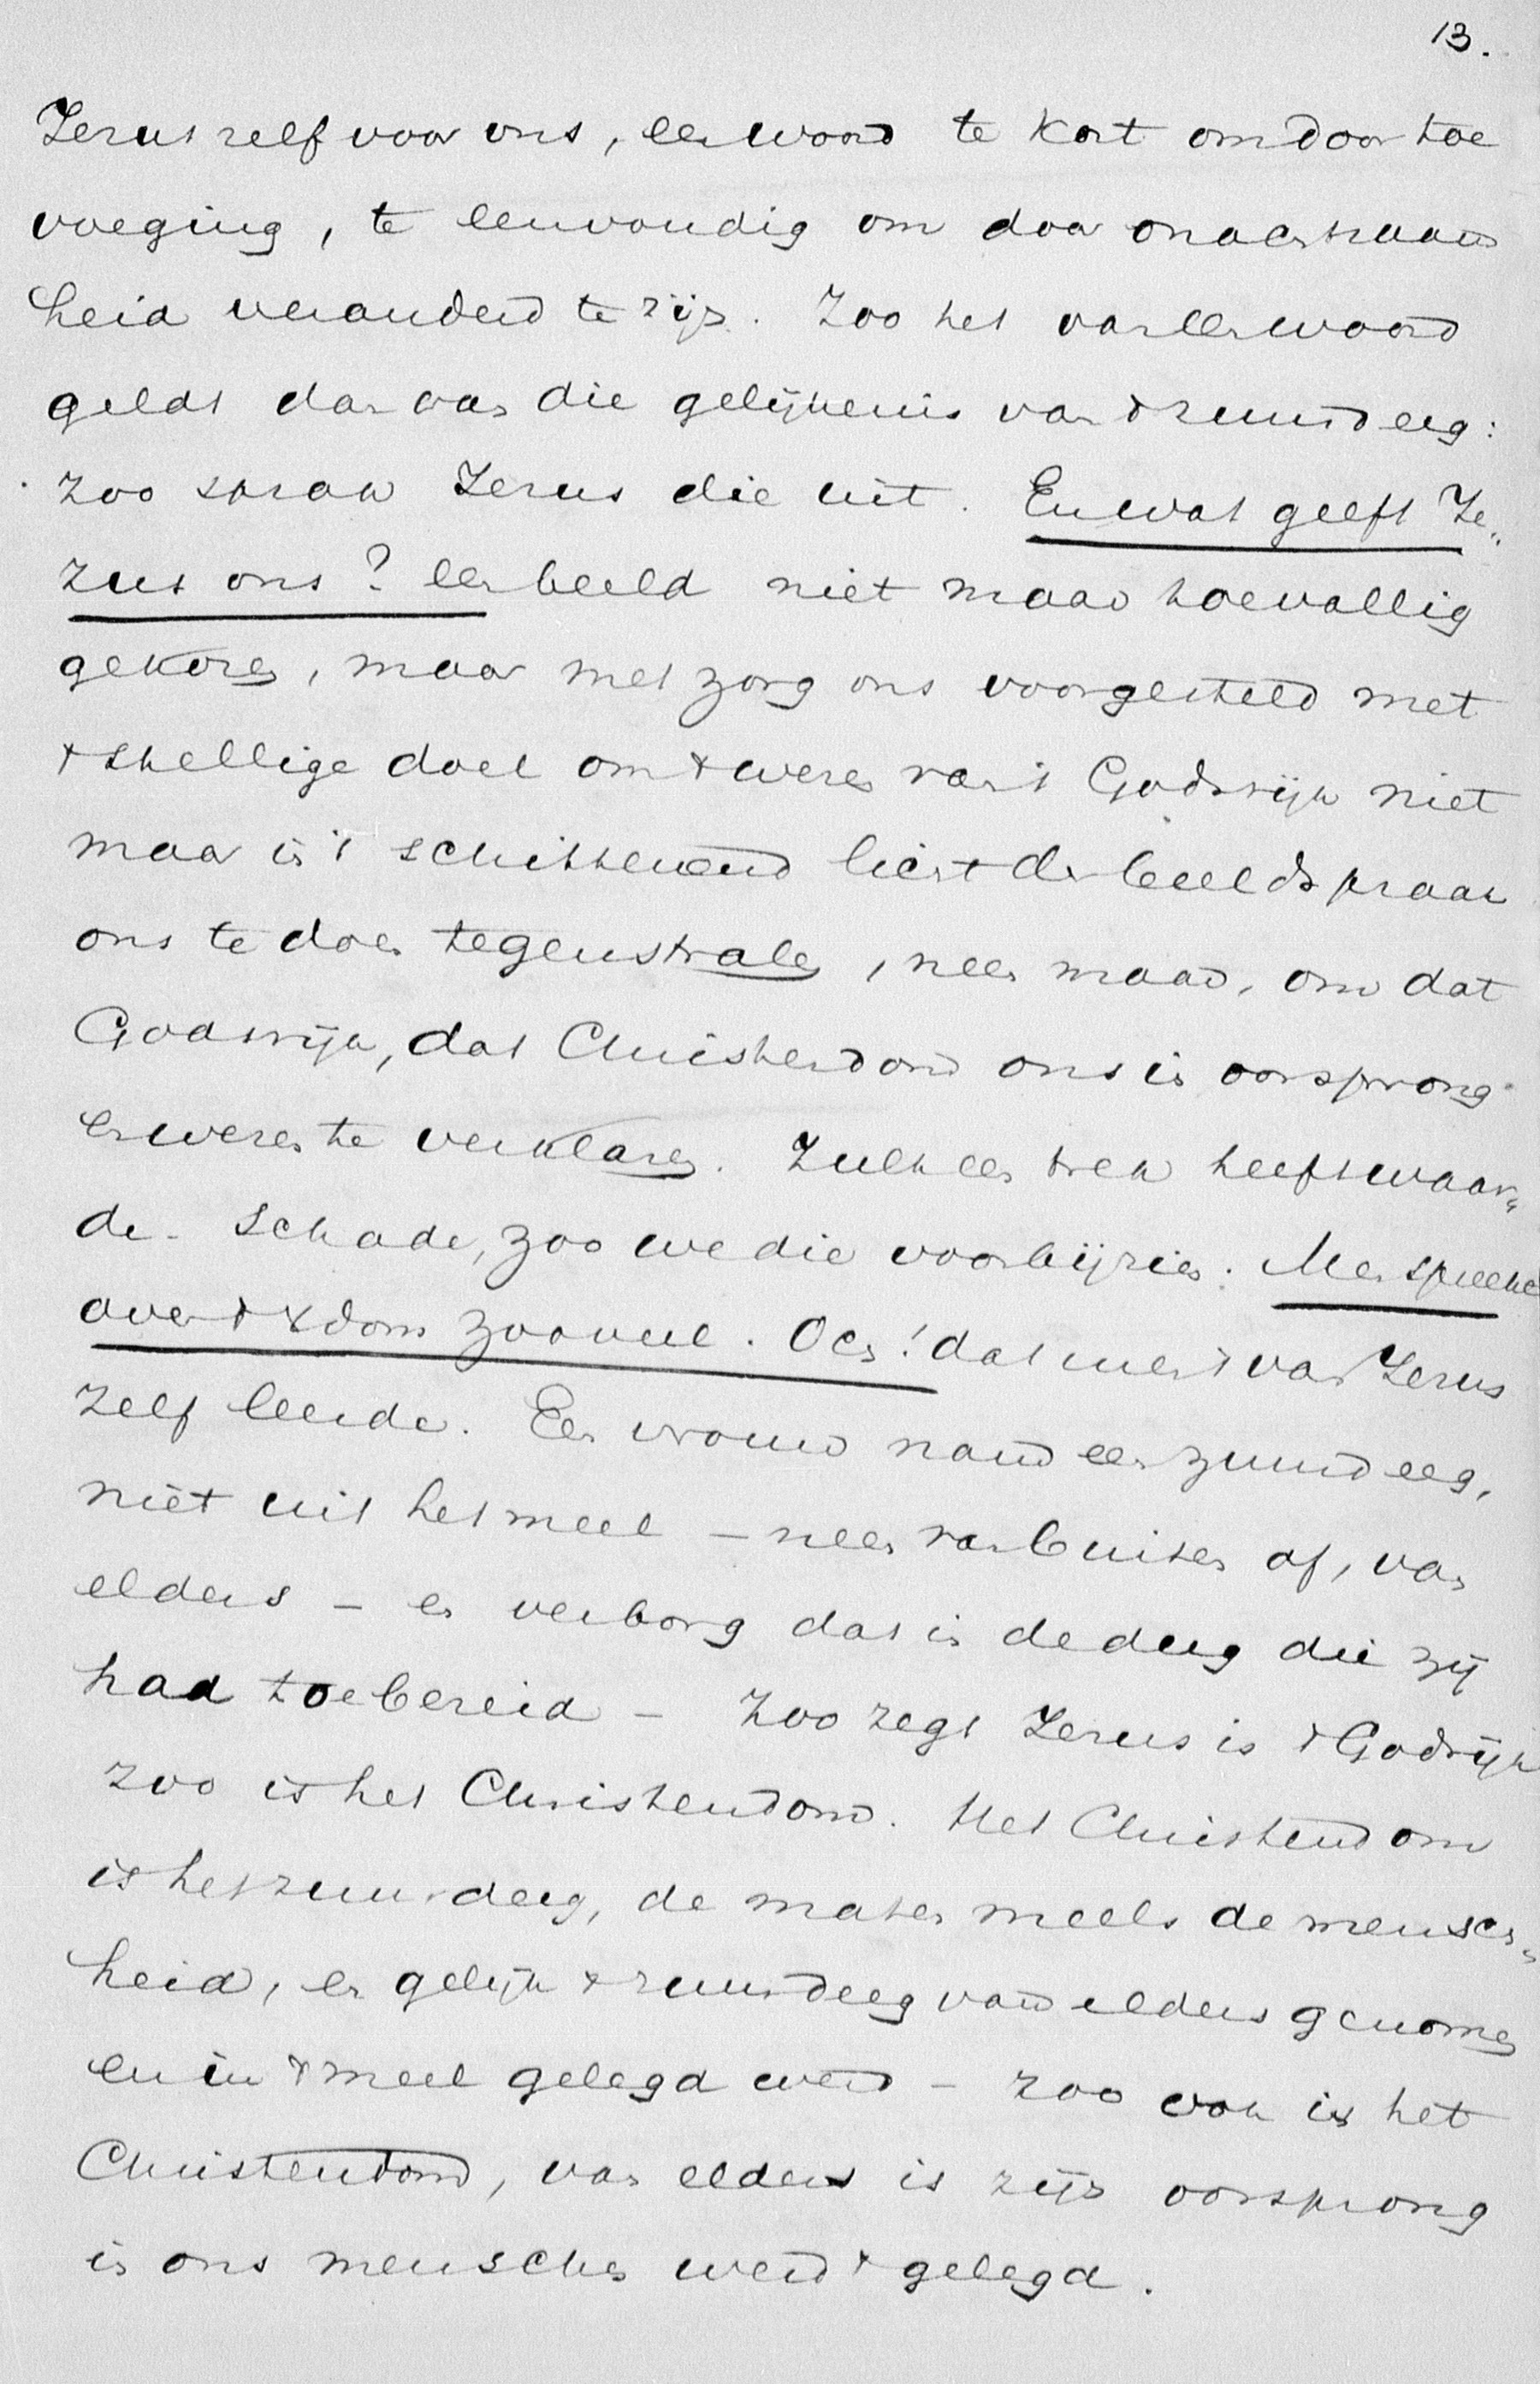 13.
Jezus zelf voor ons, een woord te kort om door toe
voeging, te eenvoudig om door onachtzaam
heid veranderd te zijn. Zoo het van een woord
geldt dan van die gelijkenis van 't zuurdeeg:
zoo sprak Jezus die uit. En wat geeft Je„
zus ons? een beeld niet maar toevallig
gekozen, maar met zorg ons voorgesteld met
't stellige doel om 't wezen van 't Godsrijk niet
maar in 't schitterend licht der beeldspraak
ons te doen tegenstralen, neen maar, om dat
Godsrijk, dat Christendom ons in oorsprong
en wezen te verklaren. Zulk een trek heeft waar„
de. Schade, zoo we die voorbijzien. Men spreekt
over 't Xdom zooveel. Och! dat men 't van Jezus
zelf leerde. Een vrouw nam een zuurdeeg,
niet uit het meel – neen van buiten af, van
elders – en verborg dat in de deeg die zij
had toebereid – Zoo zegt Jezus is 't Godsrijk
zoo is het Christendom. Het Christendom
is het zuurdeeg, de maten meels de mensch„
heid, en gelijk 't zuurdeeg van elders genomen
en in 't meel gelegd werd – zoo ook is het
Christendom, van elders is zijn oorsprong
in ons menschen werd 't gelegd.